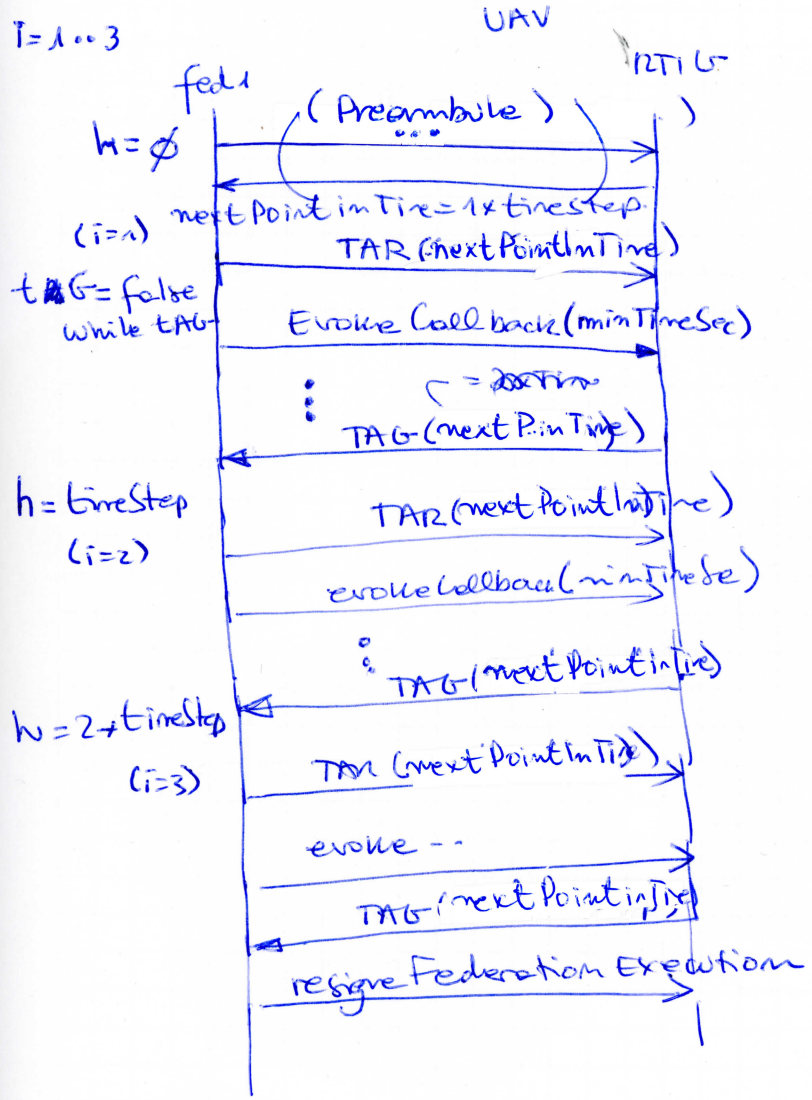 i=1..3
UAV
fed1
RTIG
(Preambule) )
...
h=ø
nextPointinTime=1xtimestep
(i=1)
TAR(nextPointInTime)
tAG=false
while tAG
Evoke Callback(minTimeSec)
TAG(nextPinTime)
h=timeStep
TAR(nextPointInTime)
(i=2)
evokeCallback(minTimeSe)
TAG(nextPointinTime)
h=2*timeStep
TAR(nextPointInTime)
(i=3)
evoke --
TAG(nextPointinTime)
resigne Federation Execution